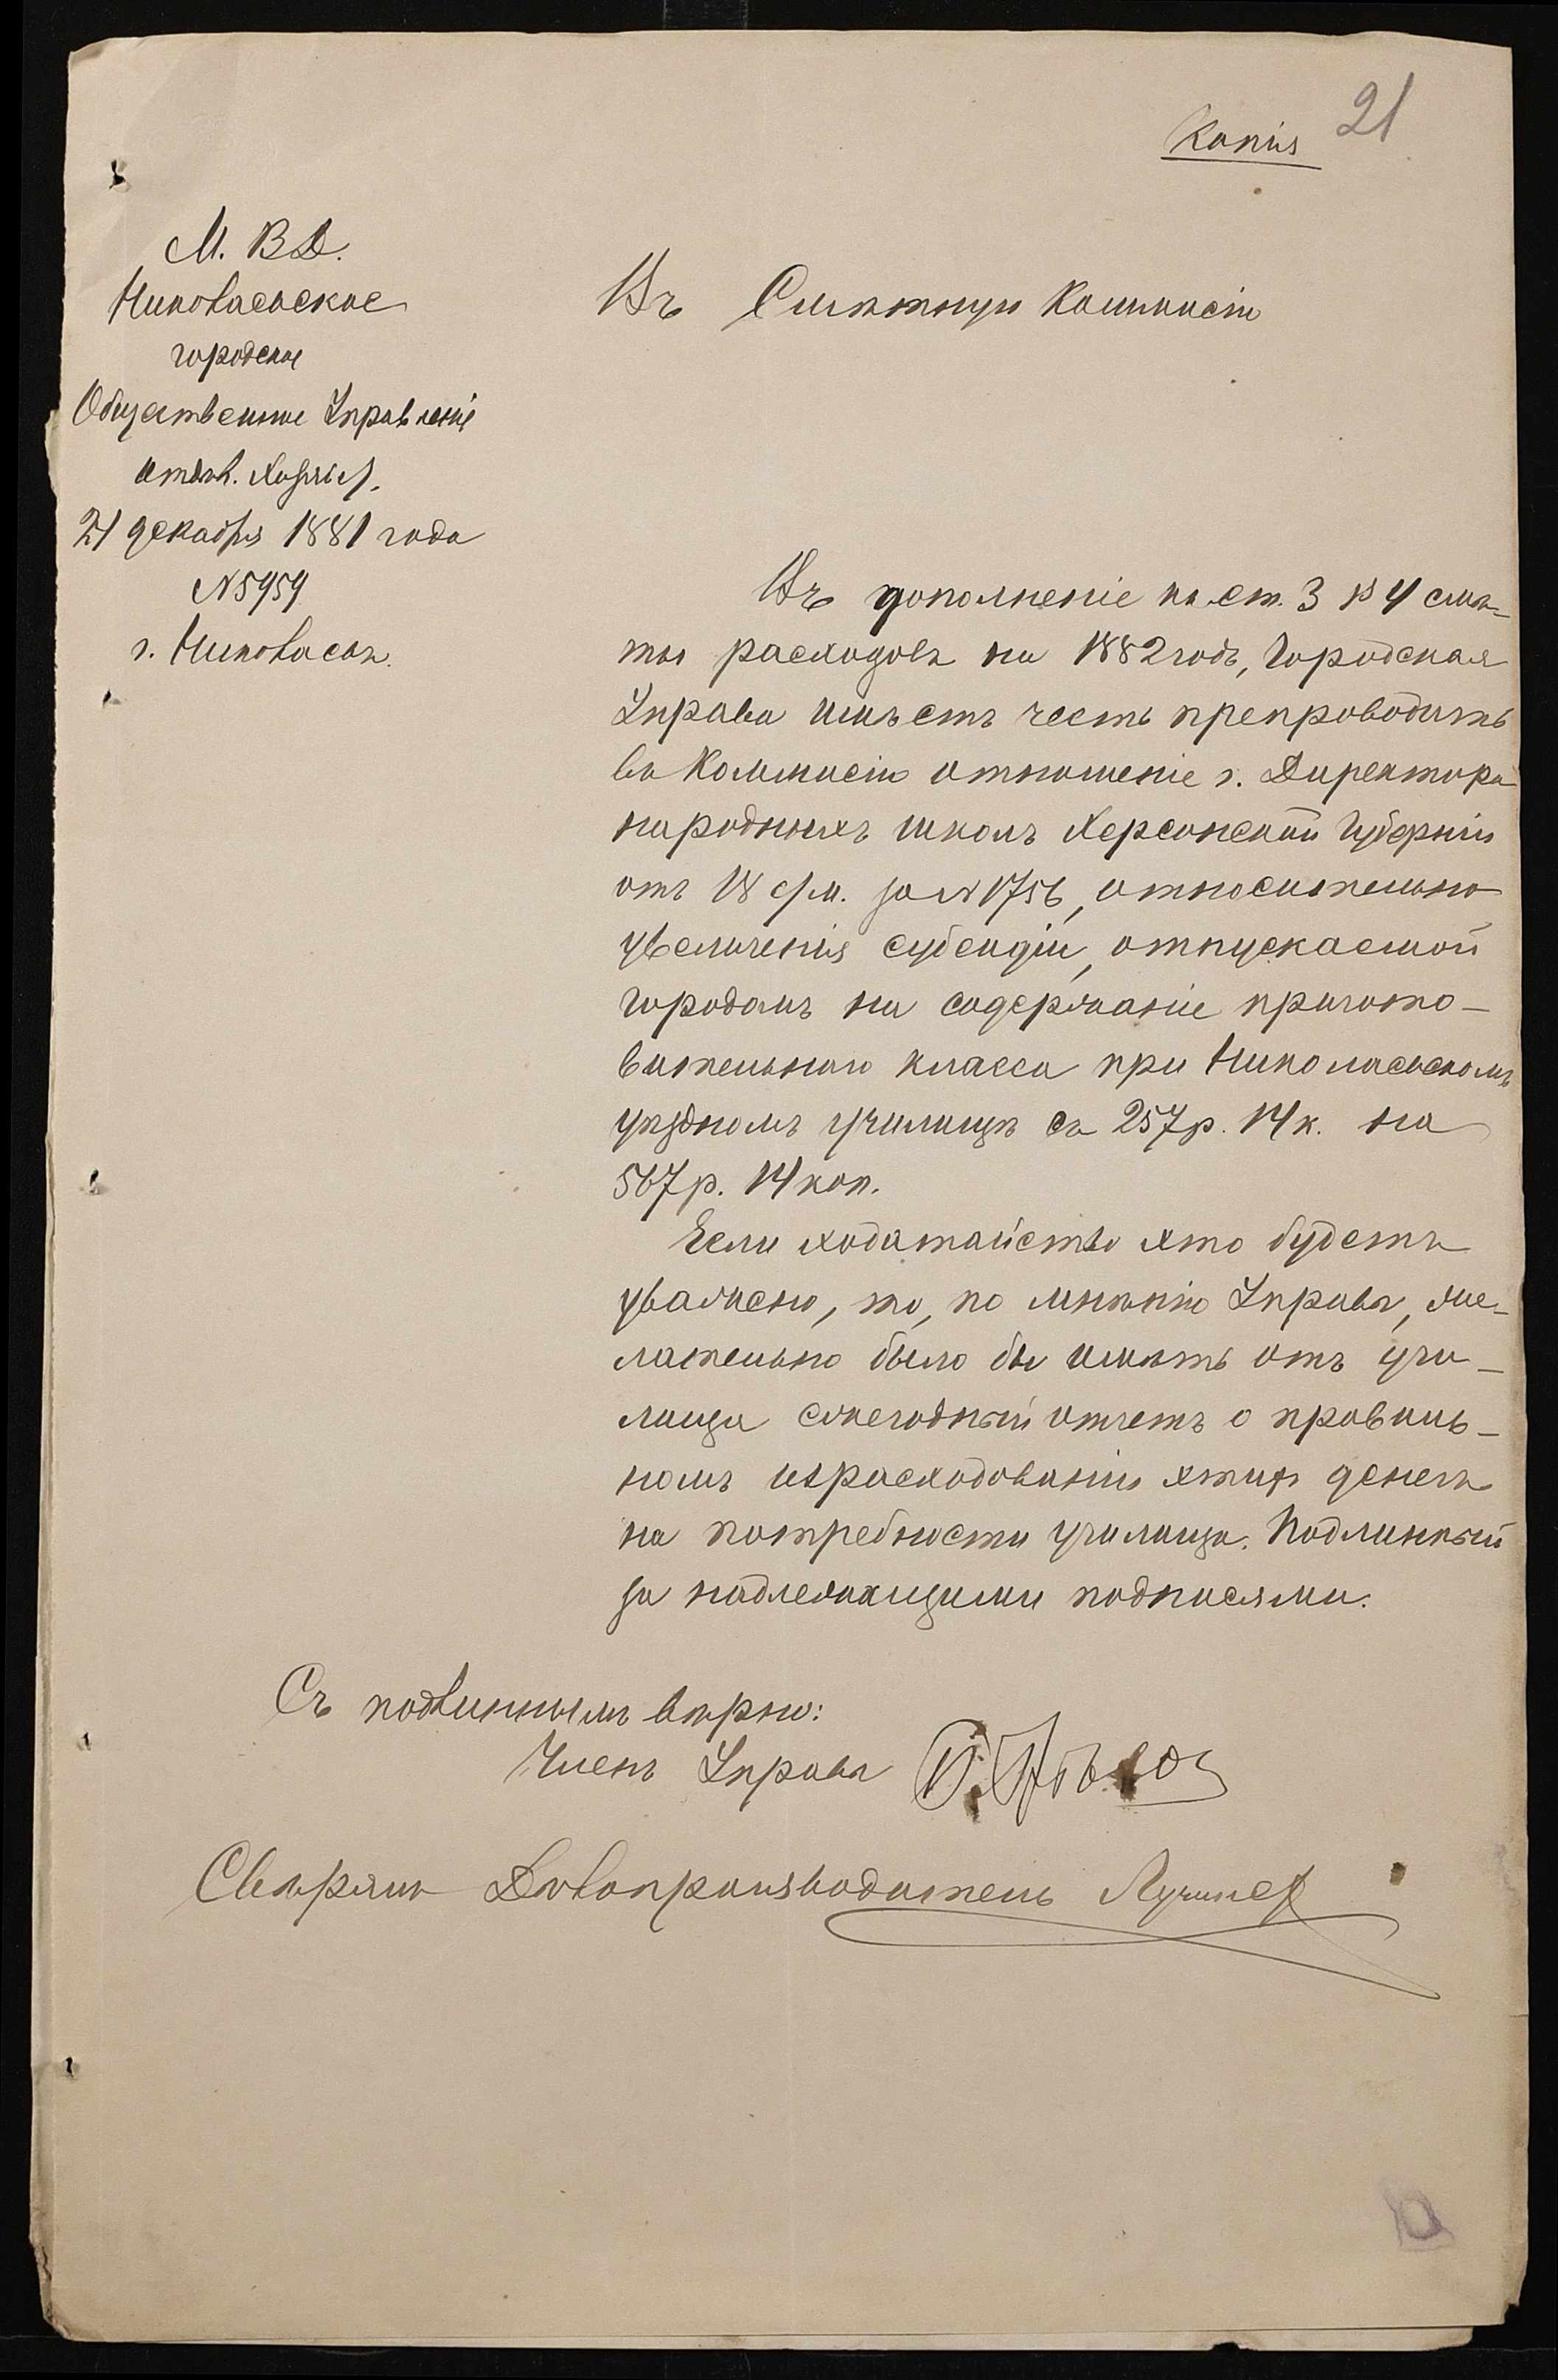 Копія 21
М. В. Д.
Николаевское
городское
Общественное Управленіе
отдѣл. Хозяйст.
21 декабря 1881 года
N 5959
г. Николаевъ.
Въ Смѣтную Коммисію
Въ дополненіе къ ст. 3 § 4 смѣ-
ты расходовъ на 1882 годъ, Городская
Управа имѣетъ честь препроводить
въ Коммисію отношеніе г. Директора
народныхъ школъ Херсонской Губерніи
отъ 18 с/м. за N 1756, относительно
увеличенія субсидіи, отпускаемой
городомъ на содержаніе пригото-
вительнаго класса при Николаевскомъ
уѣздномъ училищѣ съ 257 р. 14 к. на
567 р. 14 коп.
Если ходатайство это будетъ
уважено, то, по мнѣнію Управы, же-
лательно было бы имѣть отъ учи-
лища ежегодный отчетъ о правиль-
номъ израсходованіи этихъ денегъ
на потребности училища. Подлинный
за надлежащими подписями.
Съ подлиннымъ вѣрно:
Членъ Управы
Свѣрялъ Дѣлопроизводитель